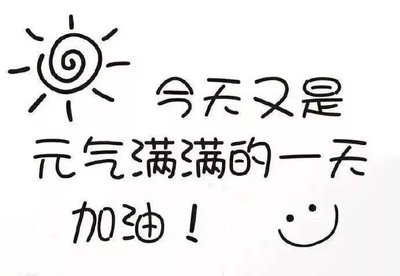 今天又是
元气满满的一天
加油！